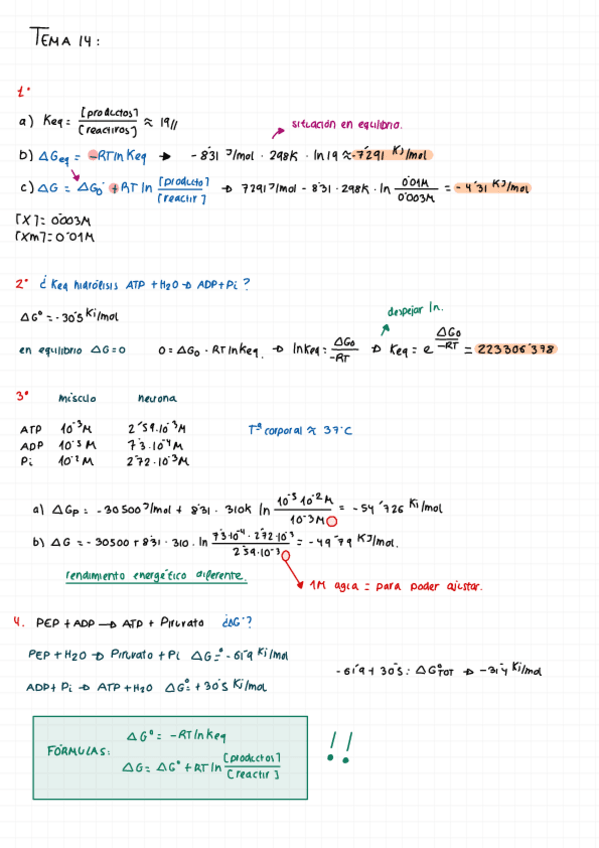 TEMA 14:
1.
a) Keq = [productos] / [reactivos] ≈ 19//
situación en equilibrio.
b) ΔGeq = -RT ln Keq → -8'31 J/mol · 298K · ln 19 ≈ -7'291 KJ/mol
c) ΔG = ΔG₀ + RT ln [producto] / [reactiv] → 7291 J/mol - 8'31 · 298K · ln 0'01M / 0'003M = -4'31 KJ/mol
[X]: 0'003M
[Xm]: 0'01M
2º ¿Keq hidrólisis ATP + H2O → ADP + Pi?
ΔGº = -30'5 KJ/mol
despejar ln.
en equilibrio ΔG=0 0 = ΔG₀ · RT ln Keq. → ln Keq = ΔG₀ / -RT → Keq = e ΔG₀ / -RT = 223306'398
3º músculo neurona
ATP 10⁻³M 2'59·10⁻³M
Tª corporal ≈ 37ºC
ADP 10⁻⁵M 7'3·10⁻⁴M
Pi 10⁻²M 2'72·10⁻³M
a) ΔGp = -30500 J/mol + 8'31 · 310K ln 10⁻⁵ 10⁻² M / 10⁻³M = -54'726 KJ/mol
b) ΔG = -30500 + 8'31 · 310 · ln 7'3·10⁻⁴ · 2'72·10⁻³ / 2'59·10⁻³ = -49'79 KJ/mol.
rendimiento energético diferente.
1M agua = para poder ajustar.
4. PEP + ADP → ATP + Piruvato ¿ΔGº?
PEP + H2O → Piruvato + Pi ΔGº = -61'9 KJ/mol
-61'9 + 30'5 = ΔGºTOT → -31'4 KJ/mol
ADP + Pi → ATP + H2O ΔGº = +30'5 KJ/mol
FÓRMULAS:
ΔGº = -RT ln Keq
ΔG = ΔGº + RT ln [productos] / [reactiv]
!!